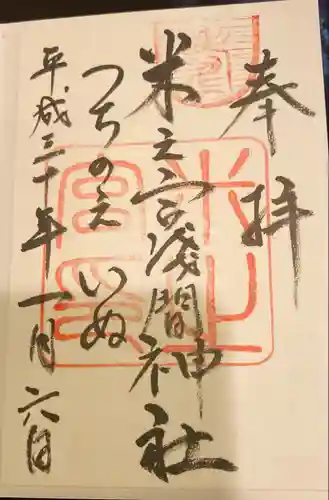 奉拝
米之宮浅間神社
つちのえ いぬ
平成三十年一月六日